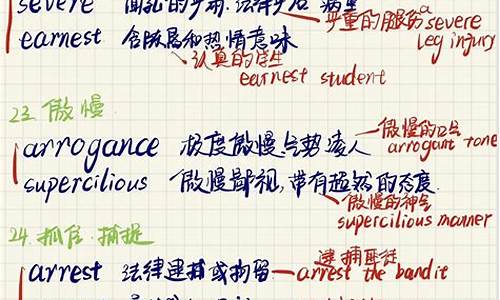 severe
严重的腿伤 a severe leg injury
earnest 含
和热情意味
认真的学生
earnest student
23. 傲慢
arrogance 极度傲慢,气势凌人
傲慢的口气
arrogant tone
supercilious 傲慢鄙视,带有超然的态度.
傲慢的神气
supercilious manner
24. 抓住.捕捉
arrest 法律逮捕或拘留
逮捕匪徒
arrest the bandit